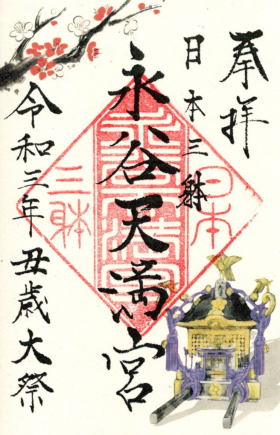 奉拝
日本三躰
永谷天満宮
令和三年丑歳大祭
日本
三躰